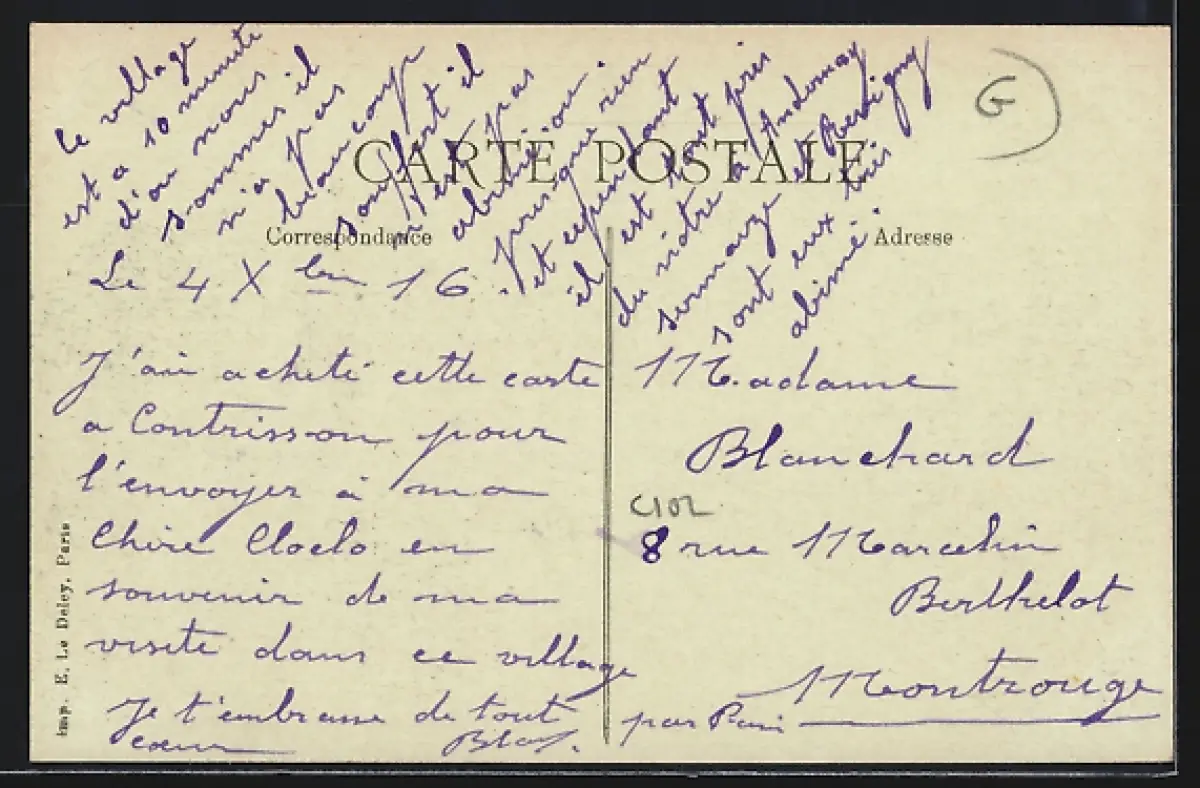 le village
est a 10 minute
d'ou nous
sommes il
n'a pas
beaucoup
souffert il
n'est pas
abimé
presque rien
et cependant
il est tout près
du nôtre à Andernay
sermaize et Revigny
sont eux très
abimé.
G
CARTE POSTALE
Correspondance
Adresse
Le 4 Xbre 16.
J'ai acheté cette carte
a Contrisson pour
l'envoyer à ma
Chère Cloclo en
souvenir de ma
visite dans ce village
Je t'embrasse de tout
coeur
Madame
Blanchard
C102
8 rue Marcelin
Berthelot
Montrouge
par Paris
Imp. E. Le Deley, Paris